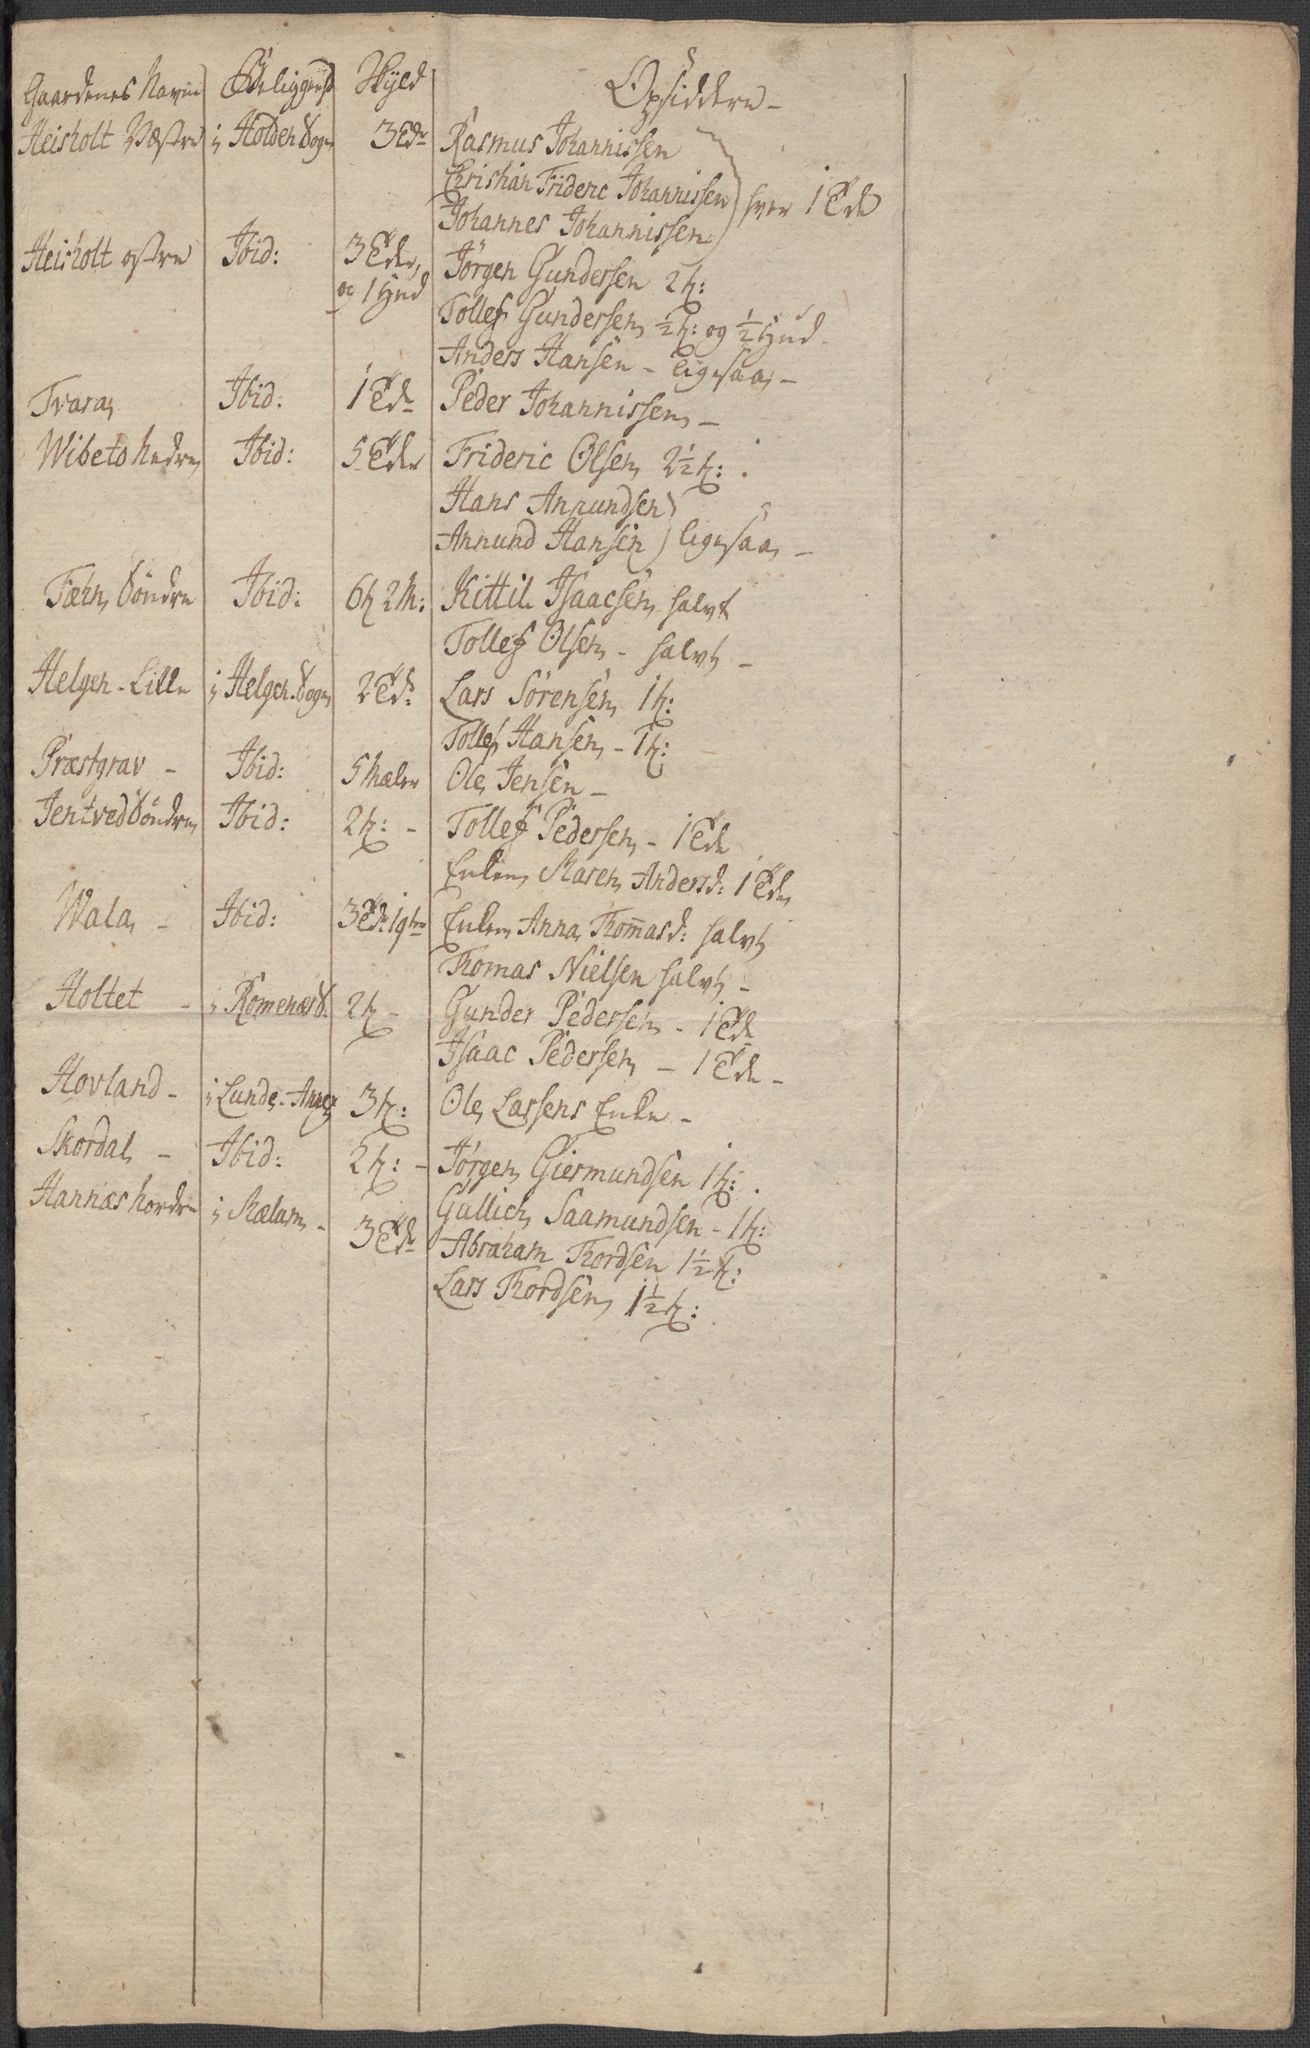 Gaardenes Navne Beliggende Skyld Opsiddere -
Heisholt Væstre i Holden Sogn 3 Tdr Rasmus Johannissen
Christian Frideric Johannissen hver 1 Tde
Johannes Johannissen
Heisholt østre Ibid: 3 Tdr, Jørgen Gundersen 2 h:
og 1 Hud Tollef Gundersen ½ h: og ½ Hud -
Anders Hansen - ligesaa -
Tvara Ibid: 1 Tde Peder Johannissen -
Wibeto nedre Ibid: 5 Tdr Frideric Olsen 2½ h: .
Hans Annundsen
Annund Hansen ligesaa -
Fæhn Søndre Ibid: 6 h 2 M: Kittil Isaacsen halvt
Tollef Olsen - halvt -
Helgen - Lille i Helgen Sogn 2 Td: Lars Sørensen 1 h:
Tollef Hansen - 1 h:
Præstgrav - Ibid: 5 Mæler Ole Jensen -
Jentved Søndre Ibid: 2 h: - Tollef Pedersen - 1 Tde
Enken Maren Andersd: 1 Tde
Wala - Ibid: 3 Td: 1 qtr Enken Anna Thomasd: halvt
Thomas Nielsen halvt -
Holtet - i Romenæs S. 2 h - Gunder Pedersen - 1 Tde
Isaac Pedersen - 1 Tde -
Hovland - i Lunde - Annex 3 h: Ole Larsens Enke -
Skordal - Ibid: 2 h: - Jørgen Giermundsen 1 h: .
Gullich Saamundsen - 1 h:
Hannæs nordre i Mælum - 3 Tdr Abraham Thordsen 1½ h:
Lars Thordsen 1½ h: